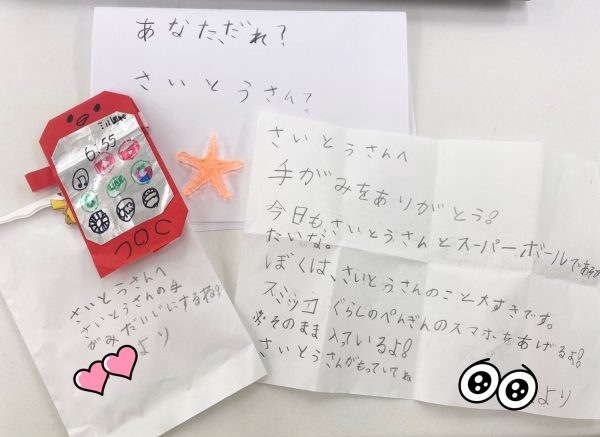 あなただれ？
さいとうさん？
6:55
さいとうさんへ
手がみをありがとう!
今日も、さいとうさんとスーパーボールであそび
たいな。
ぼくは、さいとうさんのこと大すきです。
スミッコぐらしのぺんぎんのスマホをあげるよ!
そのまま入っているよ!
さいとうさんがもっていてね
より
さいとうさんへ
さいとうさんの手
がみだいじにするね!
より